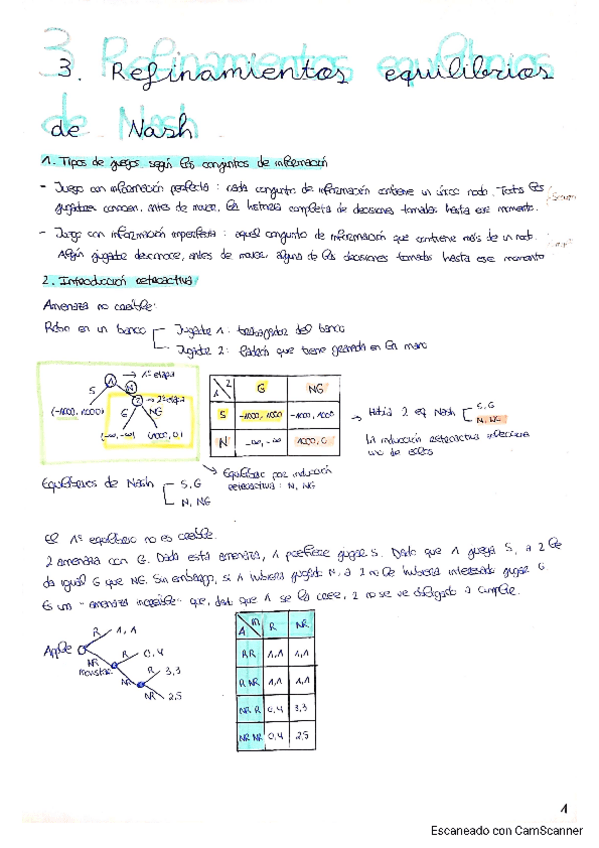 3. Refinamientos equilibrios
de Nash
1. Tipos de juegos según los conjuntos de información
- Juego con información perfecta: cada conjunto de información contiene un único nodo. Todos los
jugadores conocen, antes de mover, la historia completa de decisiones tomadas hasta ese momento.
- Juego con información imperfecta: aquel conjunto de información que contiene más de un nodo.
Algún jugador desconoce, antes de mover, alguna de las decisiones tomadas hasta ese momento
2. Introducción retroactiva
Amenaza no creíble:
Robo en un banco
Jugador 1: trabajador del banco
Jugador 2: Ladrón que tiene granada en la mano
1 → 1ª etapa
S N
2 → 2ª etapa
(-1000, 1000) G NG
(-∞, -∞) (1000, 0)
1 2 G NG
S -1000, 1000 -1000, 1000
N -∞, -∞ 1000, 0
→ Había 2 eq Nash S, G
N, NG
La inducción retroactiva selecciona
uno de ellos
Equilibrio por inducción
retroactiva: N, NG
Equilibrios de Nash S, G
N, NG
El 1º equilibrio no es creíble.
2 amenaza con G. Dada esta amenaza, 1 prefiere jugar S. Dado que 1 juega S, a 2 le
da igual G que NG. Sin embargo, si 1 hubiera jugado N, a 2 no le hubiera interesado jugar G.
Es una "amenaza increíble" que, dado que 1 se la cree, 2 no se ve obligado a cumplir.
Apple R 1,1
NR Movistar R 0,4
NR R 3,3
NR 2,5
A M R NR
RR 1,1 1,1
R NR 1,1 1,1
NR R 0,4 3,3
NR NR 0,4 2,5
1
Escaneado con CamScanner